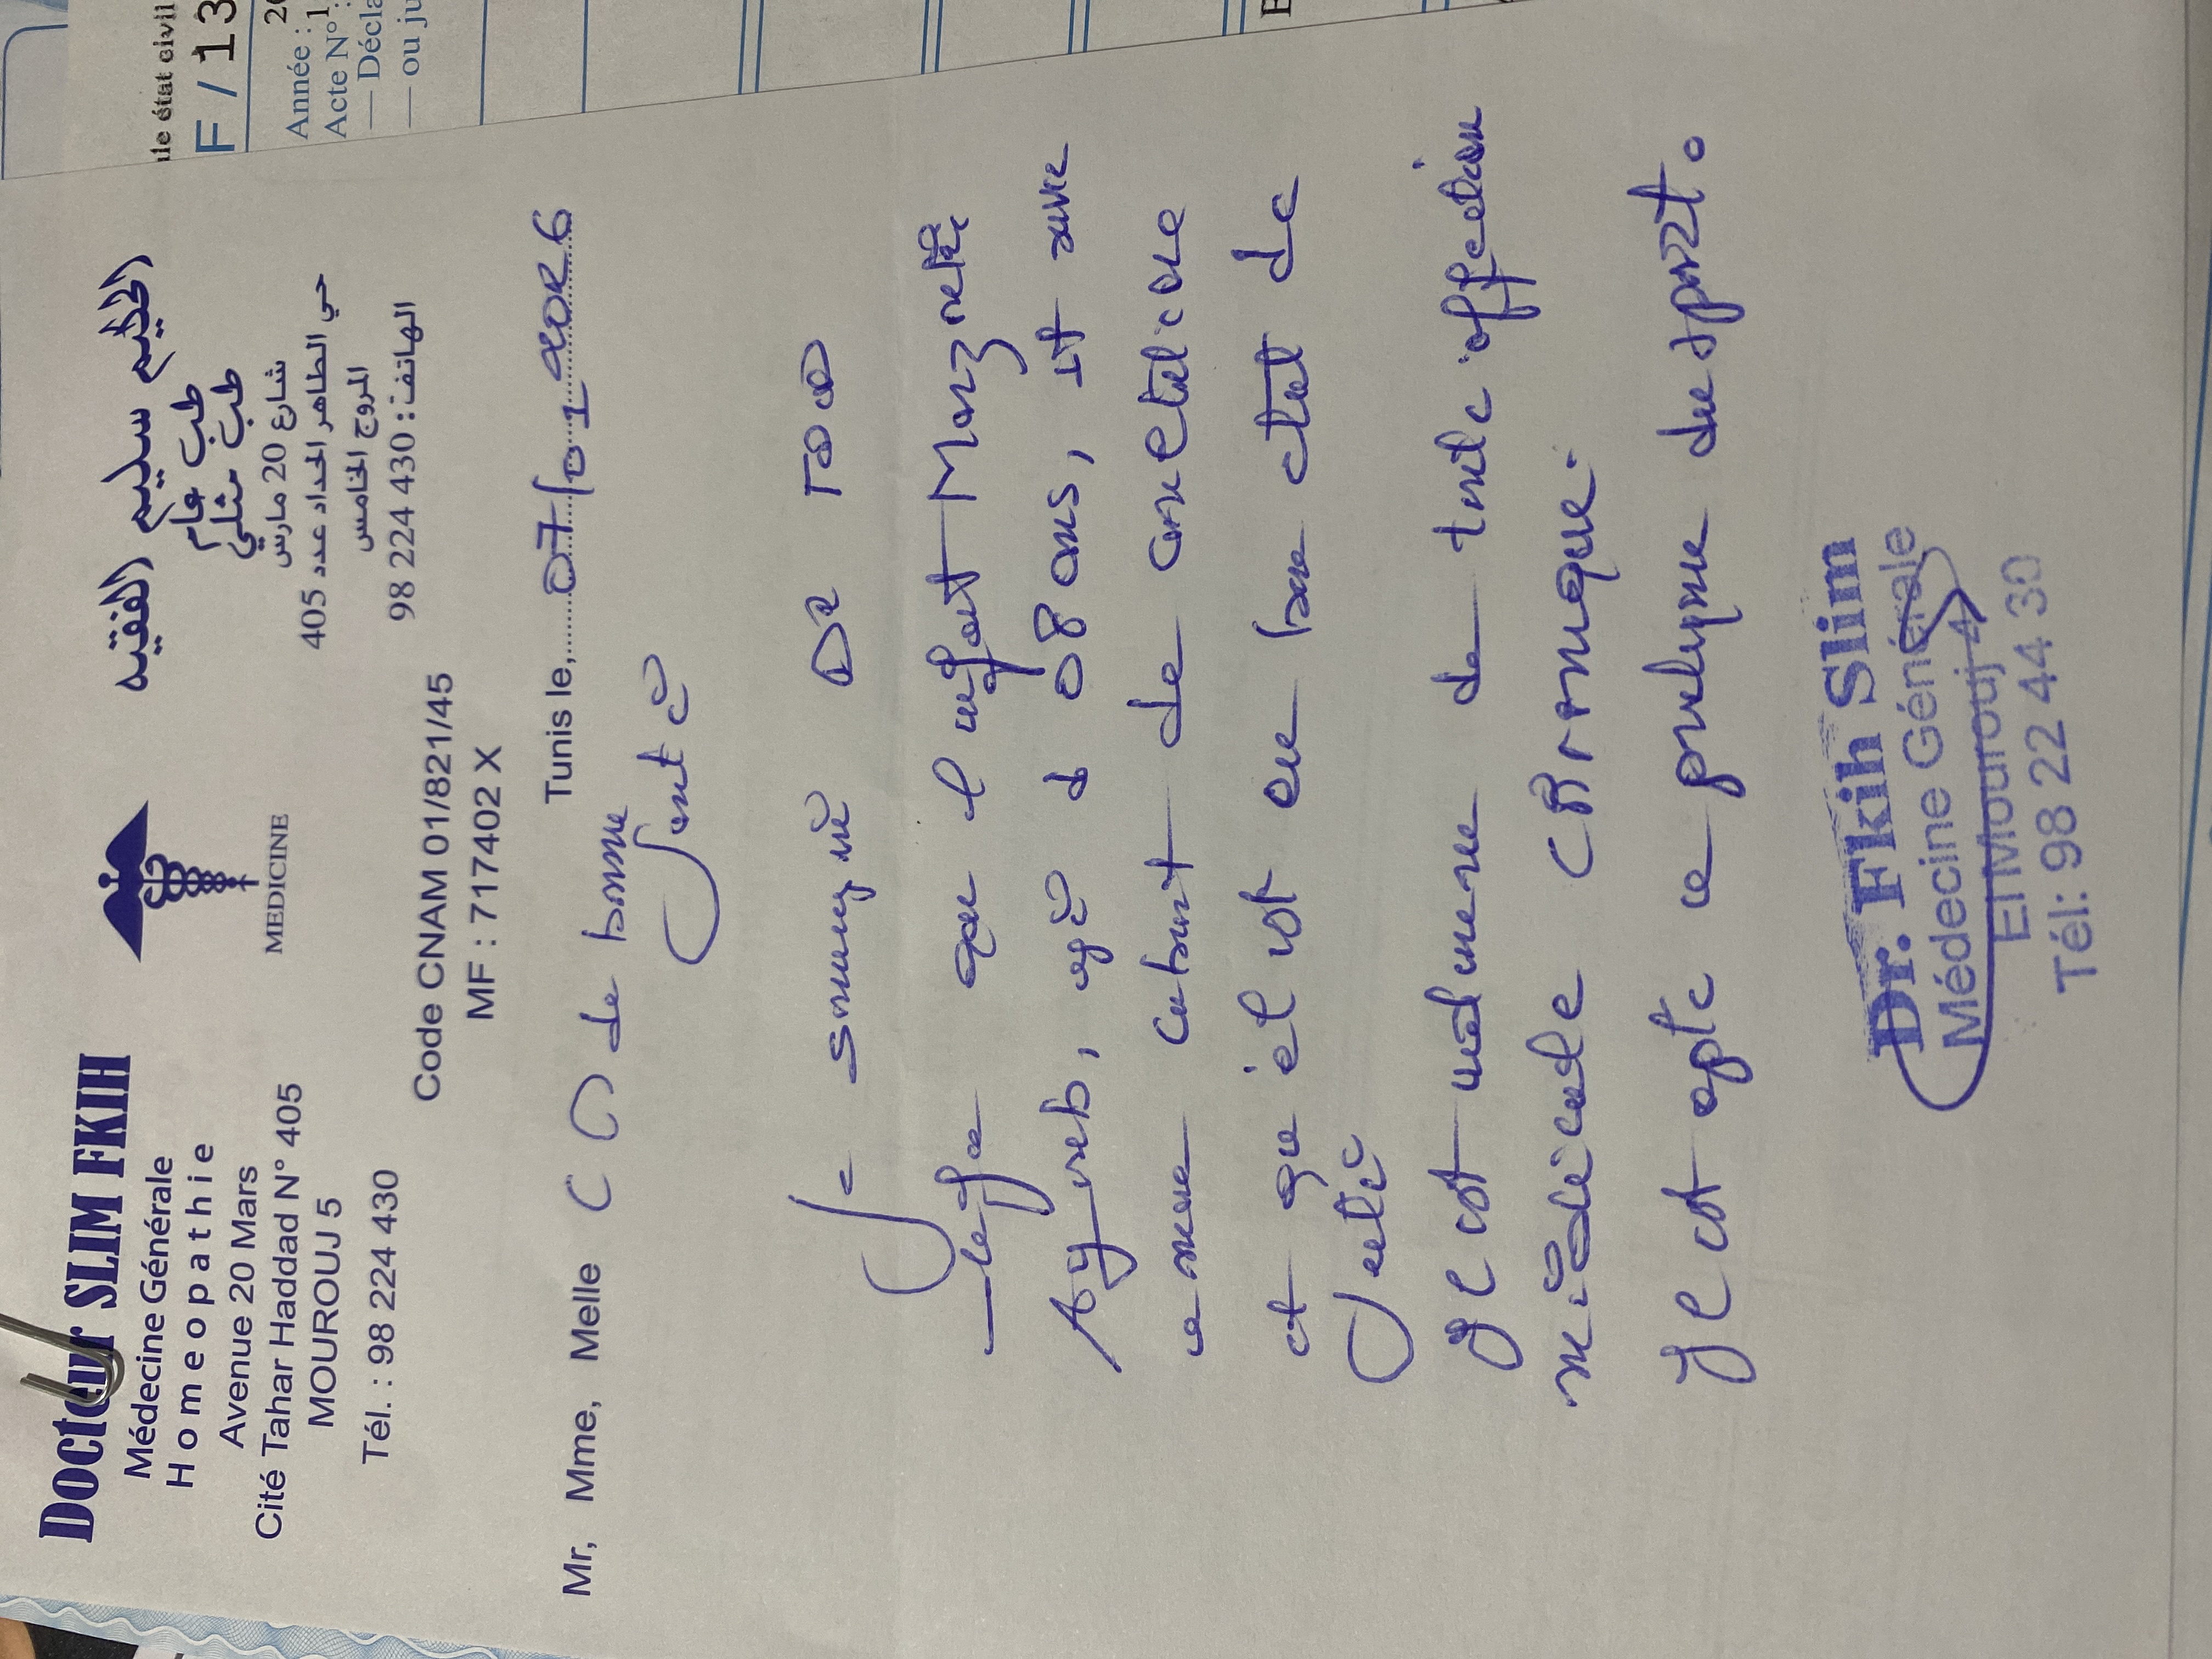 Docteur SLIM FKIH
Médecine Générale
Homeopathie
Avenue 20 Mars
Cité Tahar Haddad N° 405
MOUROUJ 5
Tél. : 98 224 430
MEDICINE
الحكيم سليم الفقيه
طب عام
طب مثلي
شارع 20 مارس
حي الطاهر الحداد عدد 405
المروج الخامس
الهاتف : 430 224 98
Code CNAM 01/821/45
MF : 717402 X
Tunis le, 07/01
Mr, Mme, Melle C de bonne
Santé
Je soussigné Dr
que l'enfant
âgé 08 ans, et
de
et que il est en bon état de
Santé
Il est indemne de toute affection
médicale chronique.
Il est apte a pratiquer du sport.
Dr. Fkih Slim
Médecine Générale
El Mourouj 4
Tél: 98 22 44 30
ale état civil
F / 13
Année :
Acte N° :
— Décla
— ou ju